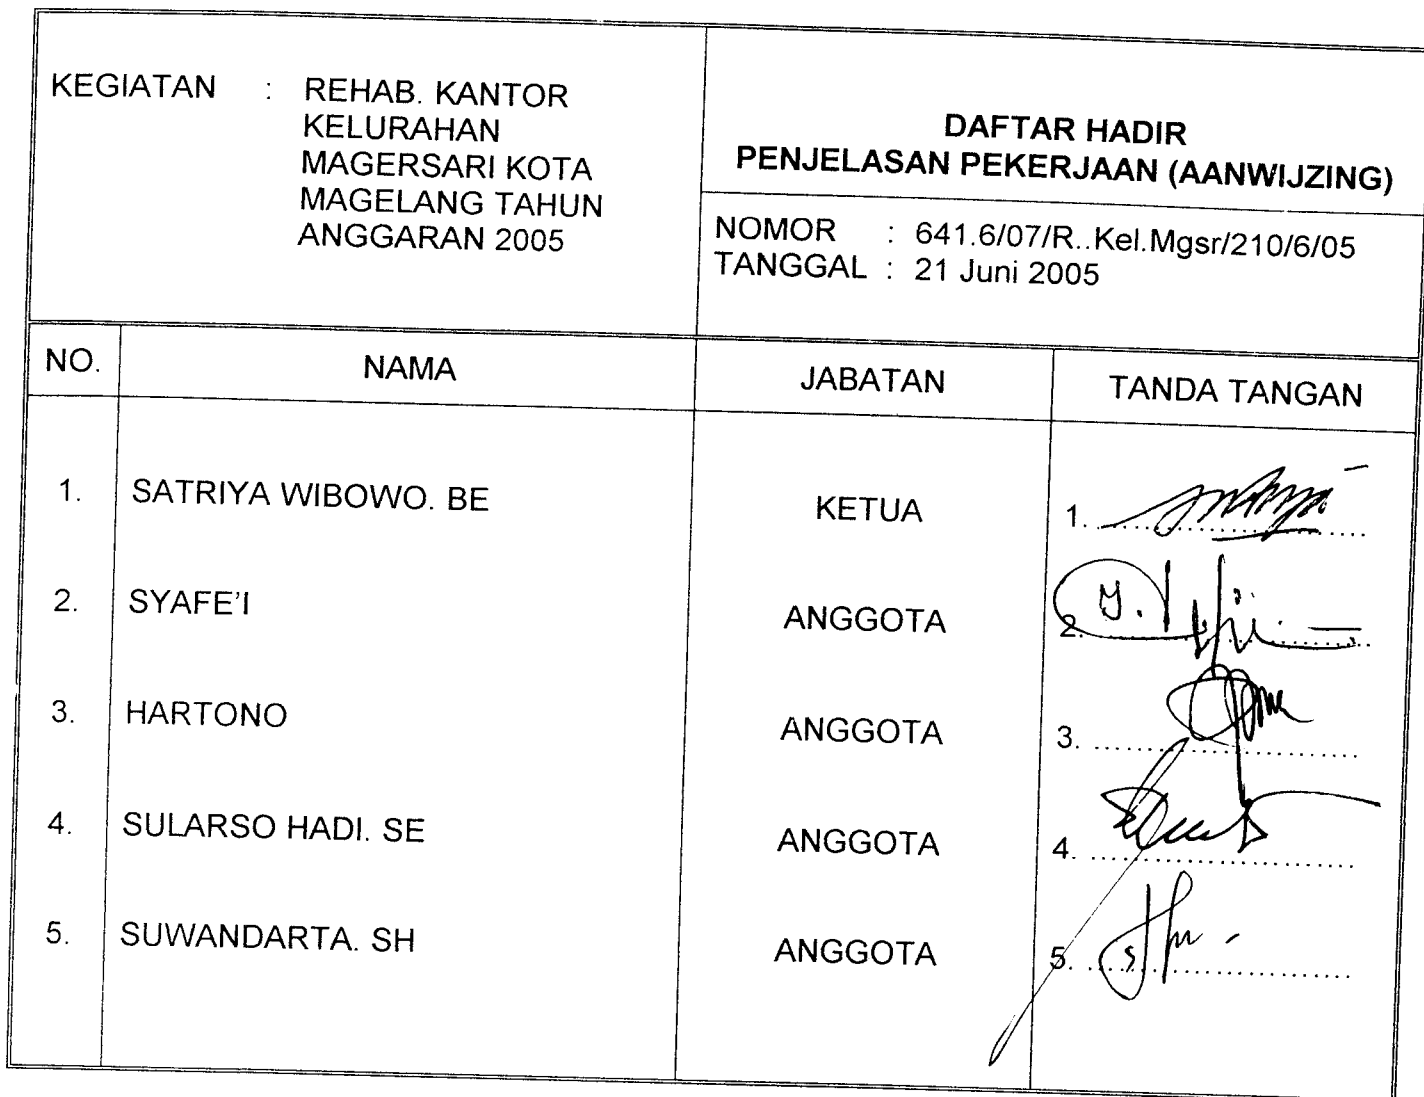 KEGIATAN : REHAB. KANTOR
KELURAHAN
MAGERSARI KOTA
MAGELANG TAHUN
ANGGARAN 2005
DAFTAR HADIR
PENJELASAN PEKERJAAN (AANWIJZING)
NOMOR : 641.6/07/R..Kel.Mgsr/210/6/05
TANGGAL : 21 Juni 2005
NO. NAMA JABATAN TANDA TANGAN
1. SATRIYA WIBOWO. BE KETUA 1. ....................
2. SYAFE'I ANGGOTA 2. ....................
3. HARTONO ANGGOTA 3. ....................
4. SULARSO HADI. SE ANGGOTA 4. ....................
5. SUWANDARTA. SH ANGGOTA 5. ....................